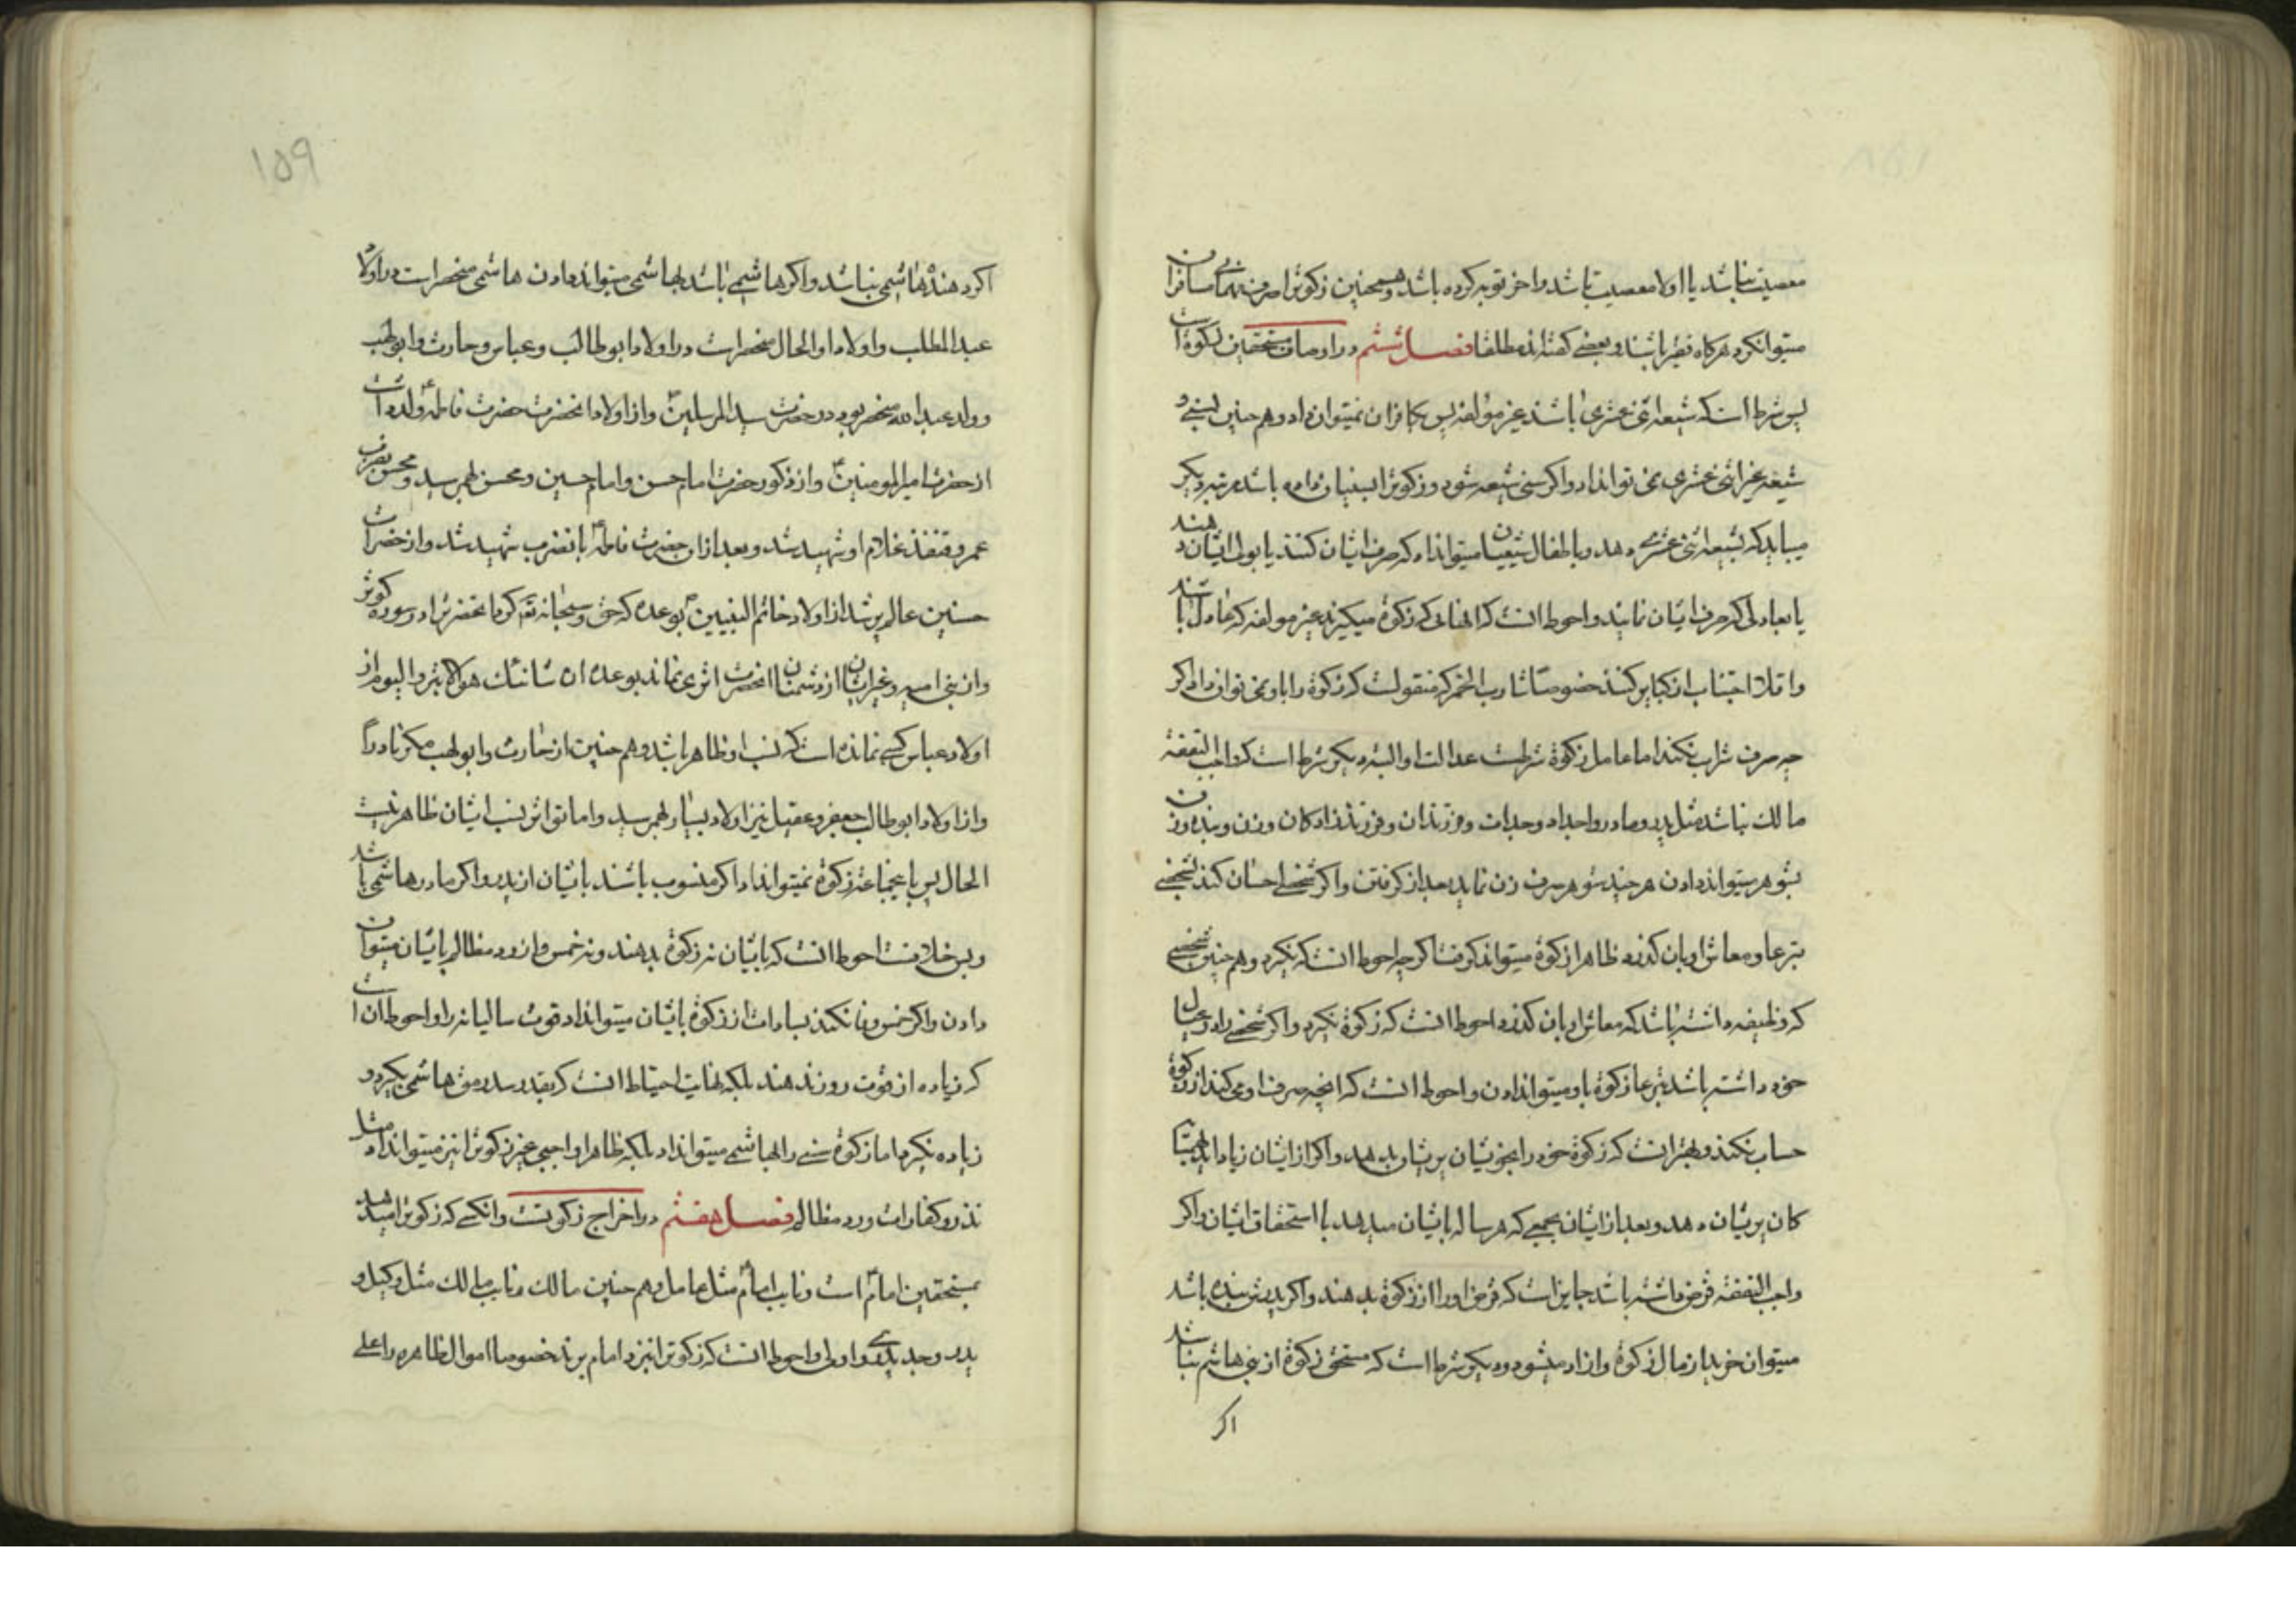 معصیت نباشد یا اولا معصیت باشد و اخر توبه کرده باشد و همچنین زکوترا صرف مسافران
میتوان کرد هرکاه فقیر باشند و بعضی کفته‌اند مطلقا فصل ششم در اوصاف مستحقین زکوة است
پس شرط است که شیعه اثنی عشری باشند غیر مؤلفه پس بکافران نمیتوان داد و هم چنین بسنی و
شیعه غیر اثنی عشری نمی تواند داد و اکر سنی شیعه شود و زکوترا بسنیان داده باشد مرتبه دیکر
میباید که بشیعه اثنی عشری دهد و باطفال شیعیان میتوان داد که صرف ایشان کنند یا بولی ایشان دهند
یا بعادلی که صرف ایشان نمایند و احوط انست که انهائی که زکوة میکیرند غیر مولفه که عادل باشند
و اقلا اجتناب از کبایر کنند خصوصا شارب الخمر که منقولست که زکوة را باو نمی توان داد اکر
چه صرف شراب نکند اما عامل زکوة شرطست عدالت او البته دیکر شرط است که واجب النفقة
مالک نباشد مثل پدر و مادر و اجداد و جدات و فرزندان و فرزند زادکان و زن و بنده و زن
بشوهر میتواند دادن هر چند شوهر صرف زن نماید بعد از کرفتن و اکر شخصی احسان کند بشخصی
تبرعا و معاش او بان کذرد ظاهرا زکوة میتواند کرفت اکرچه احوط انست که نکیرد و هم چنین شخصی
که وظیفه داشته باشد که معاش او بان کذرد احوط انست که زکوة نکیرد و اکر شخصی را در عیال
خود داشته باشد تبرعا زکوة باو میتواند دادن و احوط انست که انچه صرف او می کند از زکوة
حساب نکند و بهتر انست که زکوة خود را بخویشان پریشان بدهد و اکر از ایشان زیاد اید بهمسایه
کان پریشان دهد و بعد از ایشان بجمعی که هر ساله بایشان میدهد با استحقاق ایشان و اکر
واجب النفقة قرض داشته باشد جایز است که قرض او را از زکوة بدهند و اکر پدرش بنده باشد
میتوان خرید از مال زکوة و ازاد میشود و دیکر شرط است که مستحق زکوة از بنی هاشم نباشد
اکر
۱۵۹
اکر دهنده هاشمی نباشد و اکر هاشمی باشد بهاشمی میتواند دادن هاشمی منحصر است در اولاد
عبد المطلب و اولاد او الحال منحصر است در اولاد ابوطالب و عباس و حارث و ابولهب
و ولد عبد الله منحصر بود در حضرت سید المرسلین ص و از اولاد انحضرت حضرت فاطمه ع ولد داشت
از حضرت امیرالمومنین ع و از ذکور حضرت امام حسن و امام حسین و محسن بهم رسید و محسن بضرب
عمر و قنفذ غلام او شهید شد و بعد از ان حضرت فاطمه ع بانضرب شهید شد و از حضرات
حسنین عالم پر شد از اولاد خاتم النبیین ص بوعده که حق سبحانه و تع کرد انحضرترا در سوره کوثر
و از بنی امیه و غیر ایشان از دشمنان انحضرت اثری نماند بوعده ان شانئک هو الابتر و الیوم از
اولاد عباس کسی نمانده است که نسب او ظاهر باشد و هم چنین از حارث و ابولهب مکر نادرا
و از اولاد ابوطالب جعفر و عقیل نیز اولاد بسیار بهم رسید و اما تواتر نسب ایشان ظاهر نیست
الحال پس باینجماعت زکوة نمیتواند داد اکر منسوب باشند بایشان از پدر و اکر مادر هاشمی باشد
و پس خلافست احوط انست که بایشان نه زکوة بدهند و نه خمس و از رد مظالم بایشان میتوان
دادن و اکر خمس وفا نکند بسادات از زکوة بایشان میتواند داد قوت سالیانه را و احوط ان است
که زیاده از قوت روز ندهند بلکه نهایت احتیاط انست که بقدر سد رمق هاشمی بکیرد و
زیاده نکیرد اما زکوة سنی را بهاشمی میتواند داد بلکه ظاهرا واجبی غیر زکوترا نیز میتواند داد مثل
نذر و کفارات و رد مظالم فصل هفتم در اخراج زکوتست و انکسی که زکوترا میدهد
بمستحقین امام ع است و نایب امام ع مثل عامل و هم چنین مالک و نایب مالک مثل وکیل و
پدر و جد پدری و اولی و احوط انست که زکوترا نزد امام برند خصوصا اموال ظاهره را علی